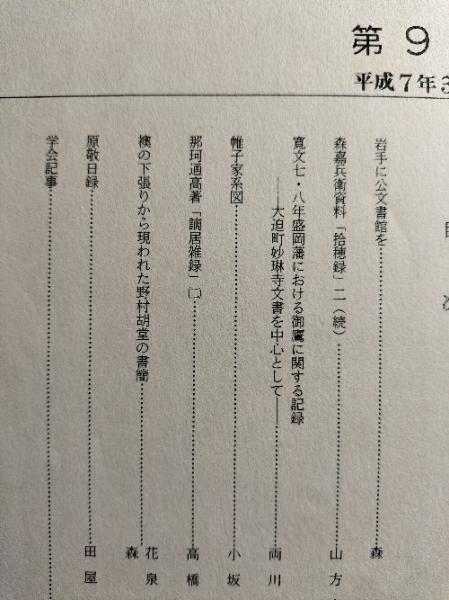 第9
平成7年3
目次
岩手に公文書館を……森
森嘉兵衛資料「拾穂録」二(続)……山方
寛文七・八年盛岡藩における御鷹に関する記録
――大迫町妙琳寺文書を中心として――……両川
帷子家系図……小坂
那珂通高著「謫居雑録」㈡……高橋
襖の下張りから現われた野村胡堂の書簡……花泉
森
原敬日録……田屋
学会記事……